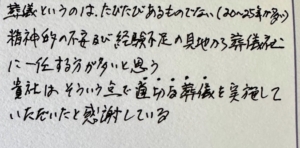 葬儀というのは、たびたびあるものでない(20〜25年が多い)
精神的の不安及び経験不足の見地から葬儀社
に一任する方が多いと思う
貴社は、そういう点で適切な葬儀を実施して
いただいたと感謝している